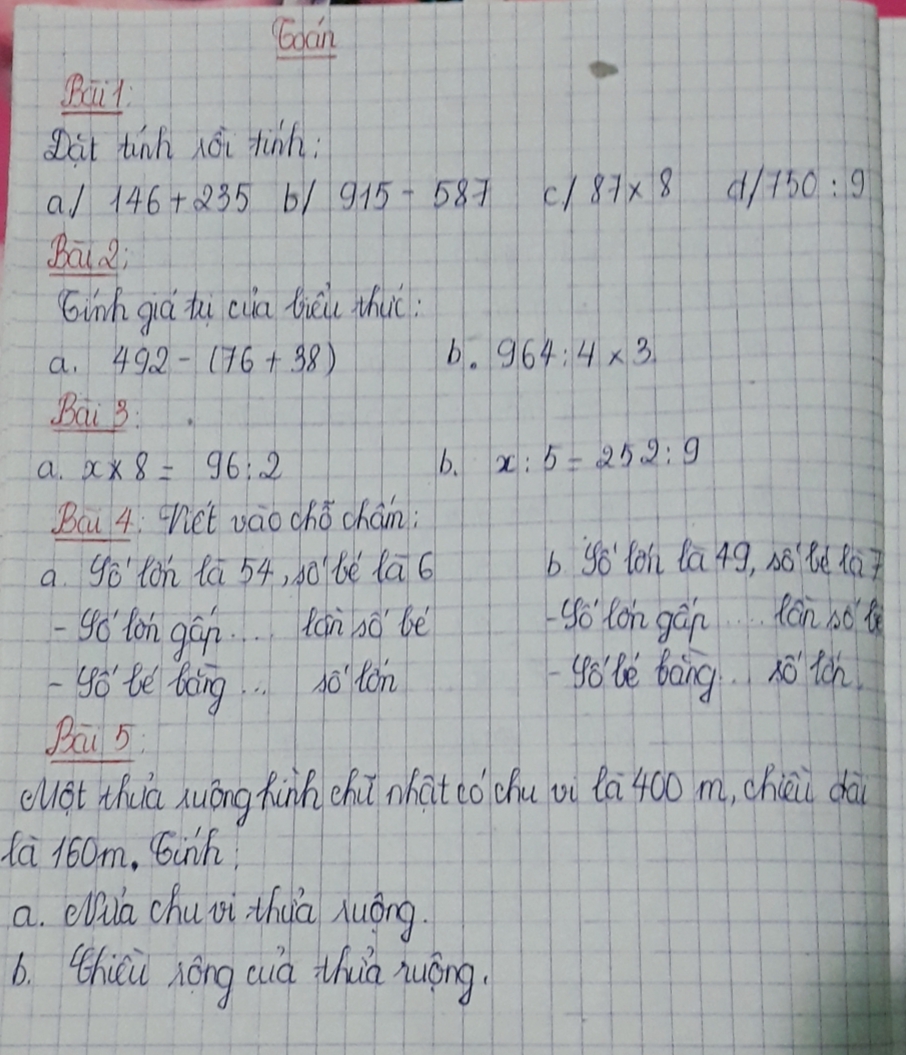 Toán
Bài 1:
Đặt tính rồi tính:
a/ 146 + 235 b/ 915 - 587 c/ 87 x 8 d/ 750 : 9
Bài 2:
Tính giá trị của biểu thức:
a. 492 - (76 + 38) b. 964 : 4 x 3
Bài 3:
a. x x 8 = 96 : 2 b. x : 5 = 252 : 9
Bài 4: Viết vào chỗ chấm:
a. Số lớn là 54, số bé là 6 b Số lớn là 49, số bé là 7
- Số lớn gấp ... lần số bé - Số lớn gấp ... lần số bé
- Số bé bằng ... số lớn - Số bé bằng ... số lớn.
Bài 5:
Một thửa ruộng hình chữ nhật có chu vi là 400 m, chiều dài
là 160m. Tính:
a. Nửa chu vi thửa ruộng.
b. Chiều rộng của thửa ruộng.